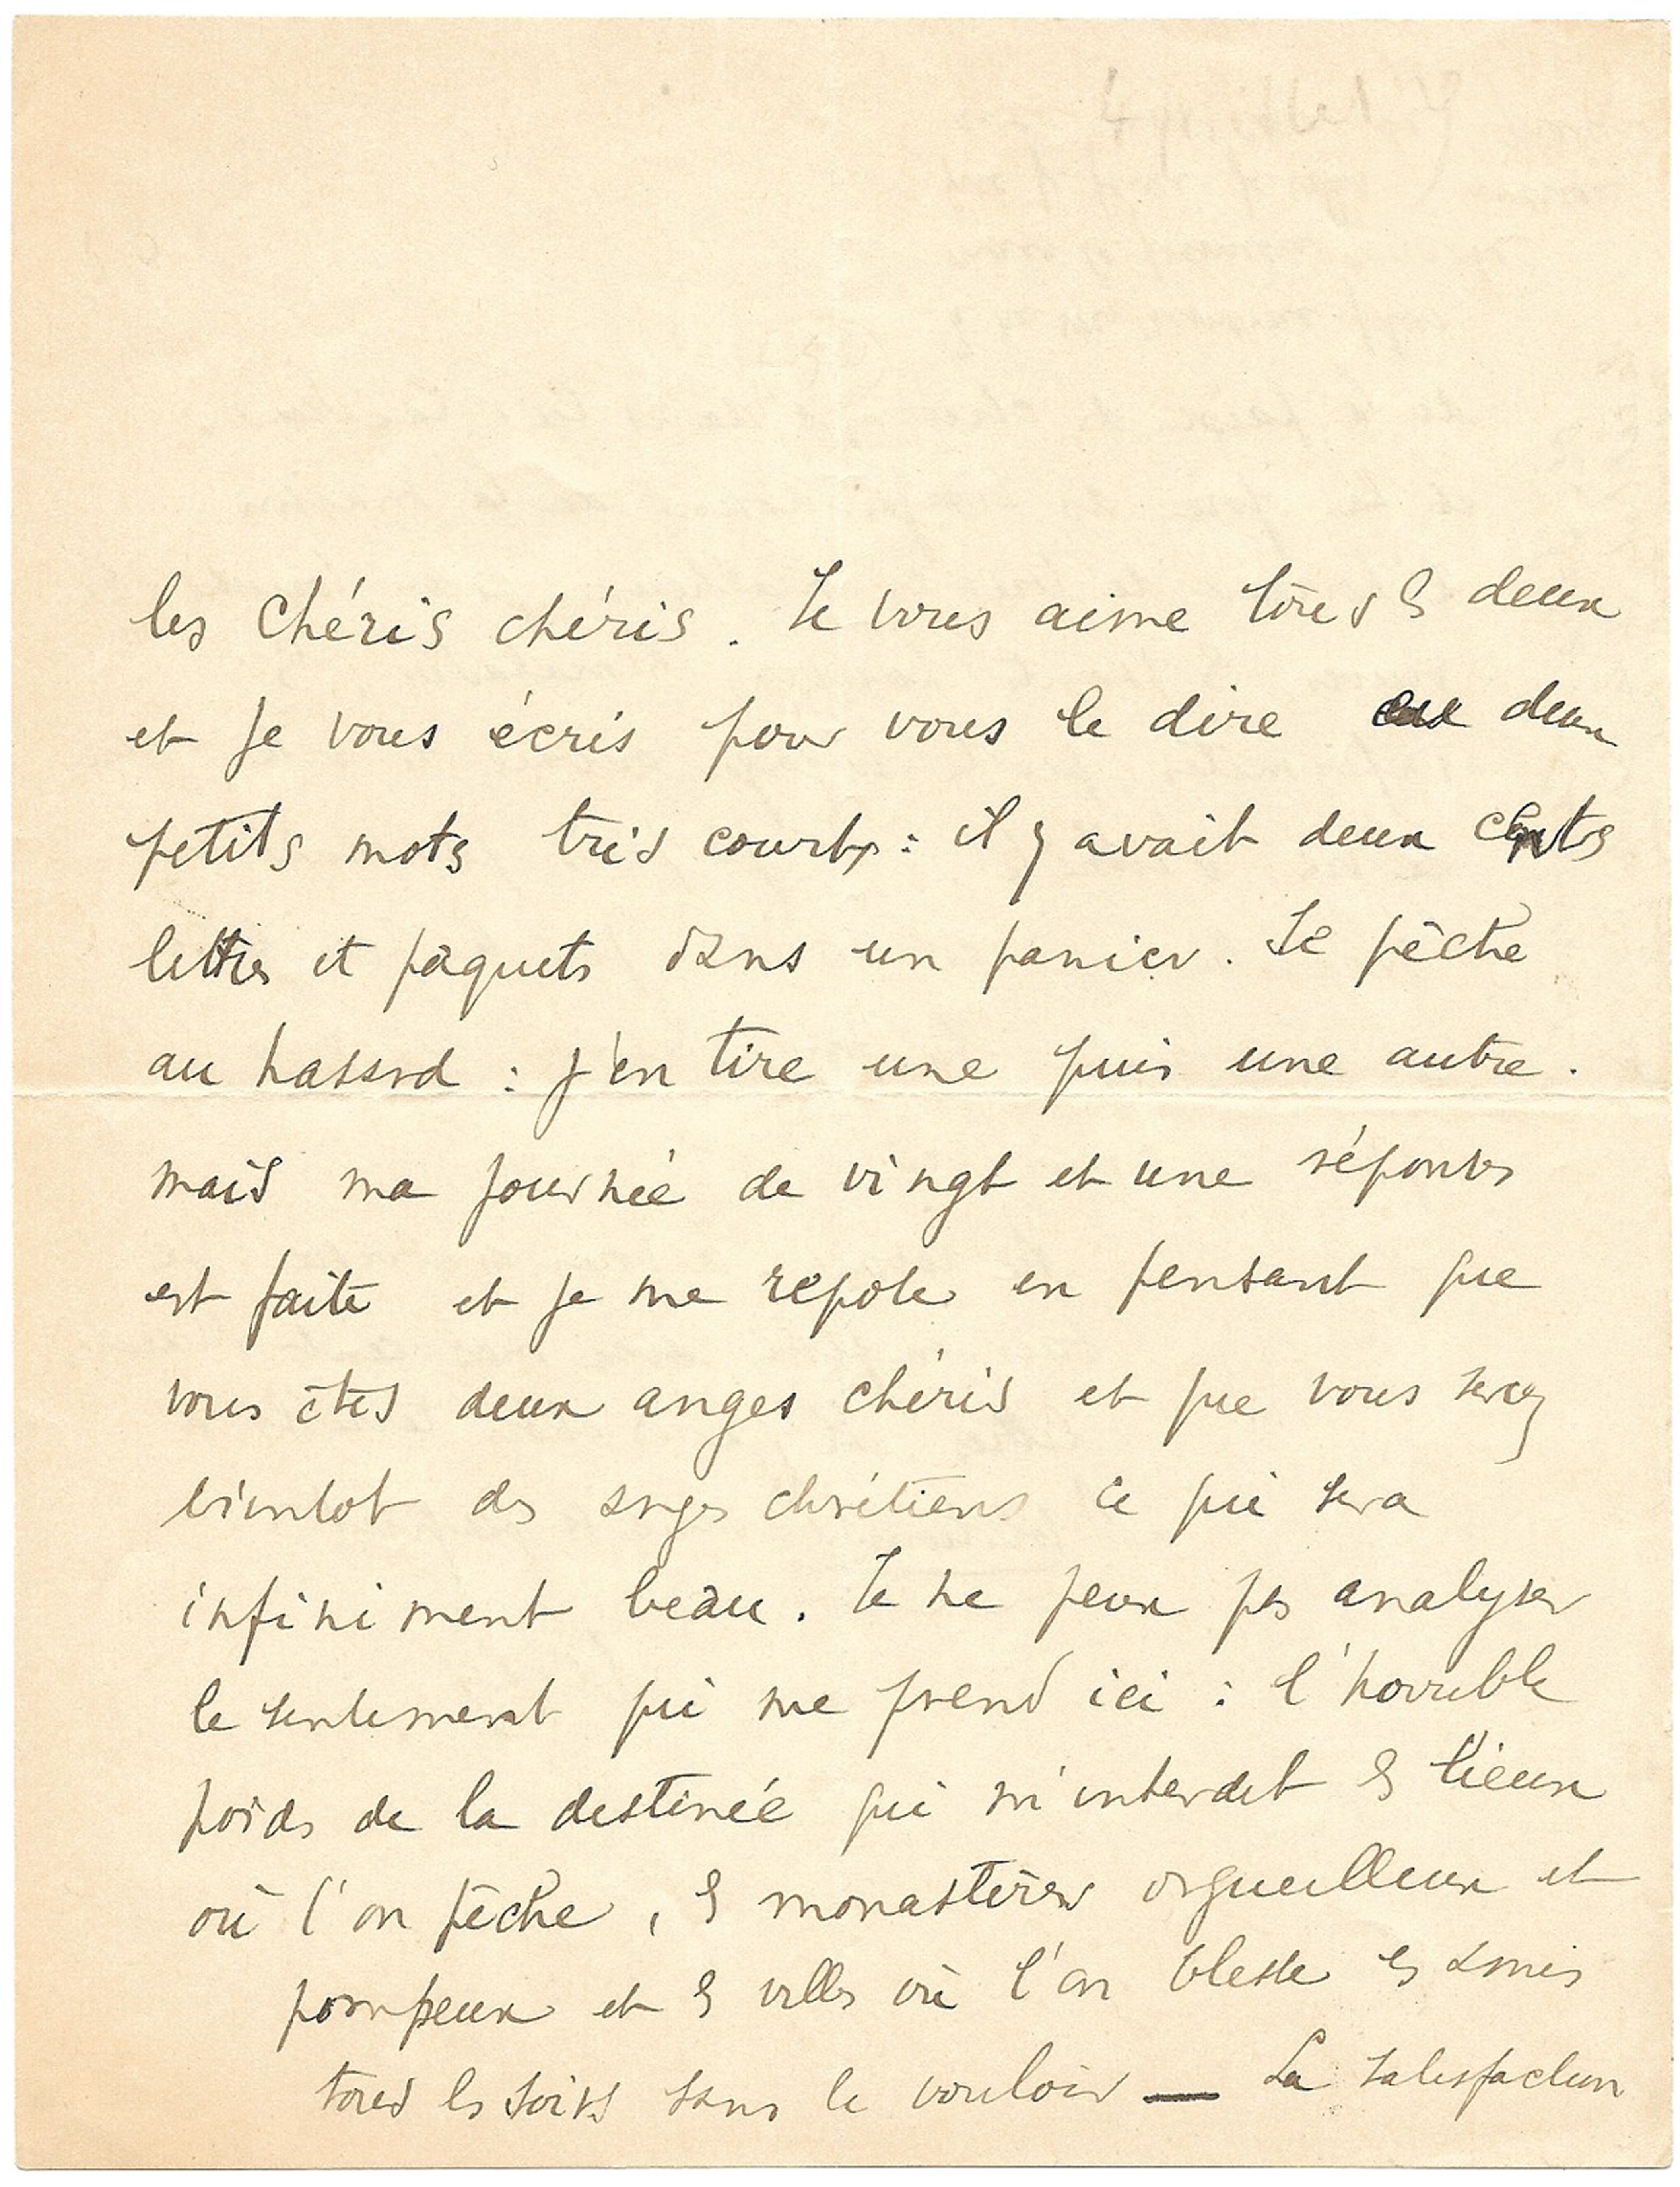 les chéris chéris. Je vous aime tous les deux
et je vous écris pour vous le dire deux
petits mots très courts : il y avait deux cents
lettres et paquets dans un panier. Je pêche
au hasard : j'en tire une puis une autre.
mais ma journée de vingt et une réponses
est faite et je me repose en pensant que
vous êtes deux anges chéris et que vous serez
bientot des anges chrétiens ce qui sera
infiniment beau. Je ne peux pas analyser
le sentiment qui me prend ici : l'horrible
poids de la destinée qui m'interdit les lieux
où l'on pêche, les monastères orgueilleux et
pompeux et les villes où l'on blesse les amis
tous les soirs sans le vouloir — La satisfaction